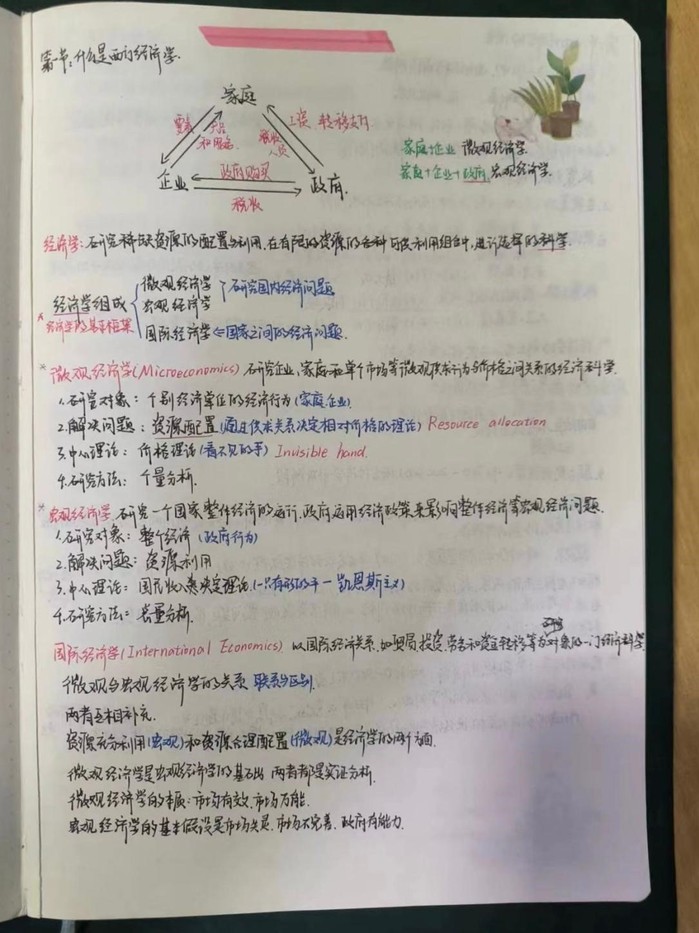 第一节:什么是西方经济学.
家庭
工资、转移支付
产品
和服务
税收
人员
企业
政府购买
税收
政府.
家庭+企业 微观经济学.
家庭+企业+政府. 宏观经济学.
经济学: 研究稀缺资源的配置与利用,在有限的资源的各种可供利用组合中,进行选择的科学.
经济学组成
经济学的基本框架
微观经济学
宏观经济学
研究国内经济问题
国际经济学⇐国家之间的经济问题.
*微观经济学(Microeconomics) 研究企业,家庭和单个市场等微观供求行为与价格之间关系的经济科学.
1.研究对象: 个别经济单位的经济行为(家庭.企业)
2.解决问题: 资源配置(通过供求关系决定相对价格的理论) Resource allocation
3.中心理论: 价格理论(看不见的手) Invisible hand.
4.研究方法: 个量分析.
*宏观经济学 研究一个国家整体经济的运行,政府运用经济政策来影响整体经济等宏观经济问题.
1.研究对象: 整个经济(政府行为)
2.解决问题: 资源利用
3.中心理论: 国民收入决定理论.(一只有形的手一 凯恩斯主义)
4.研究方法: 总量分析.
国际经济学(International Economics) 以国际经济关系,如贸易,投资,劳务和资金转移等为对象的一门经济科学.
微观与宏观经济学的关系 联系与区别.
两者互相补充.
资源充分利用(宏观)和资源合理配置(微观)是经济学的两个方面.
微观经济学是宏观经济学的基础 两者都是实证分析.
微观经济学的本质: 市场有效.市场万能.
宏观经济学的基本假设是市场失灵.市场不完善.政府有能力.